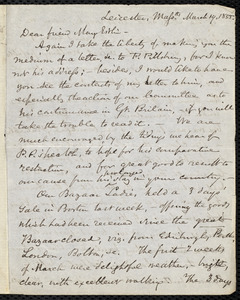 Leicester, Mass. March 14, 1855.
Dear friend Mary Estlin
Again I take the liberty of making you the
medium of a letter &c. to P. Pillsbury, for I know
not his address; besides, I would have you
see the contents of my letter to him, and
especially the action of our Committee as to
his continuance in Gt. Britain, if you will
take the trouble to read it. — We are
much encouraged by the tidings we hear fr.
P.'s health, and hope for his comparative
restoration, and for great good to result to
our cause from his prolonged stay in your country. —
Our Bazaar Ladies, held a 3 Days'
Sale in Boston last week, — offering the goods
which had been received since the great
Bazaar closed, viz. from Edinburgh, Perth
London, Bolton, &c. The first 2 weeks
of March were delightful weather, bright,
clear, with excellent walking. The 3 days